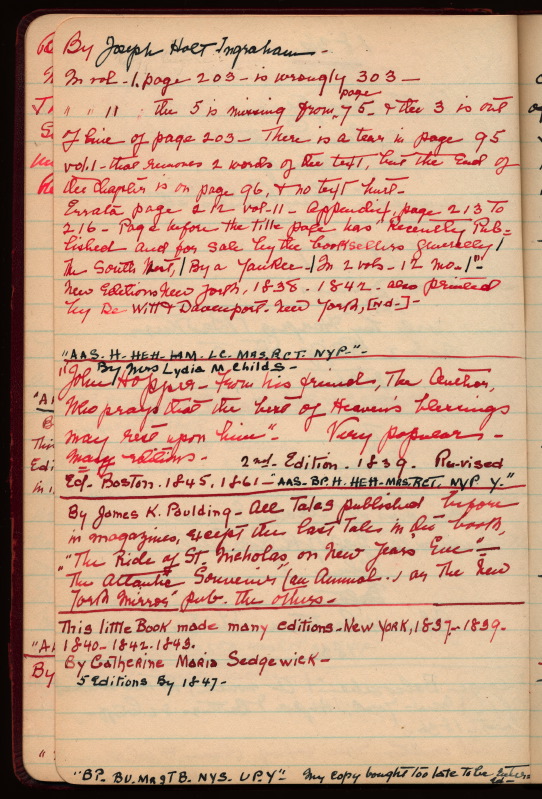 By Joseph Holt Ingraham -
In vol - 1. page 203 - is wrongly 303 -
" " 11 : the 5 is missing from page 75 - & the 3 is out
of line of page 203 - There is a tear in page 95
vol. 1 - that removes 2 words of the text, but the End of
the Chapter is on page 96, & no text hurt -
Errata page 212 vol - 11 - Appendix, page 213 to
216 - Page before the title page has "Recently Pub-
lished and for sale by the booksellers generally /
The South West, / By a Yankee - / In 2 vols - 12 mo - / " -
New Editions New York, 1838 - 1842 - also printed
by De Witt & Davenport - New York, [nd -] -
"AAS - H - HEH - IAM - LC - MRS. RCT. NYP -" -
By Mrs Lydia M Childs -
"John Hopper - from his friend, The Author,
Who prays that the best of Heaven's blessings
may rest upon him" - Very popular -
many editions - 2nd - Edition - 1839. Revised
Ed - Boston - 1845, 1861 - "AAS - BP. H. HEH - MRS. RCT. NYP Y."
By James K. Paulding - All Tales published before
in magazines, except the last Tales in this book,
"The Ride of St Nicholas, on New Years Eve" -
The Atlantic Souvenir (an Annual -) as The New
York Mirror pub. the others -
This little Book made many editions - New York, 1837 - 1839 -
1840 - 1842 - 1843.
By Catherine Maria Sedgewick -
5 Editions By 1847 -
"BP. BU. Mrs TB. NYS. UP. Y" - My copy bought too late to be